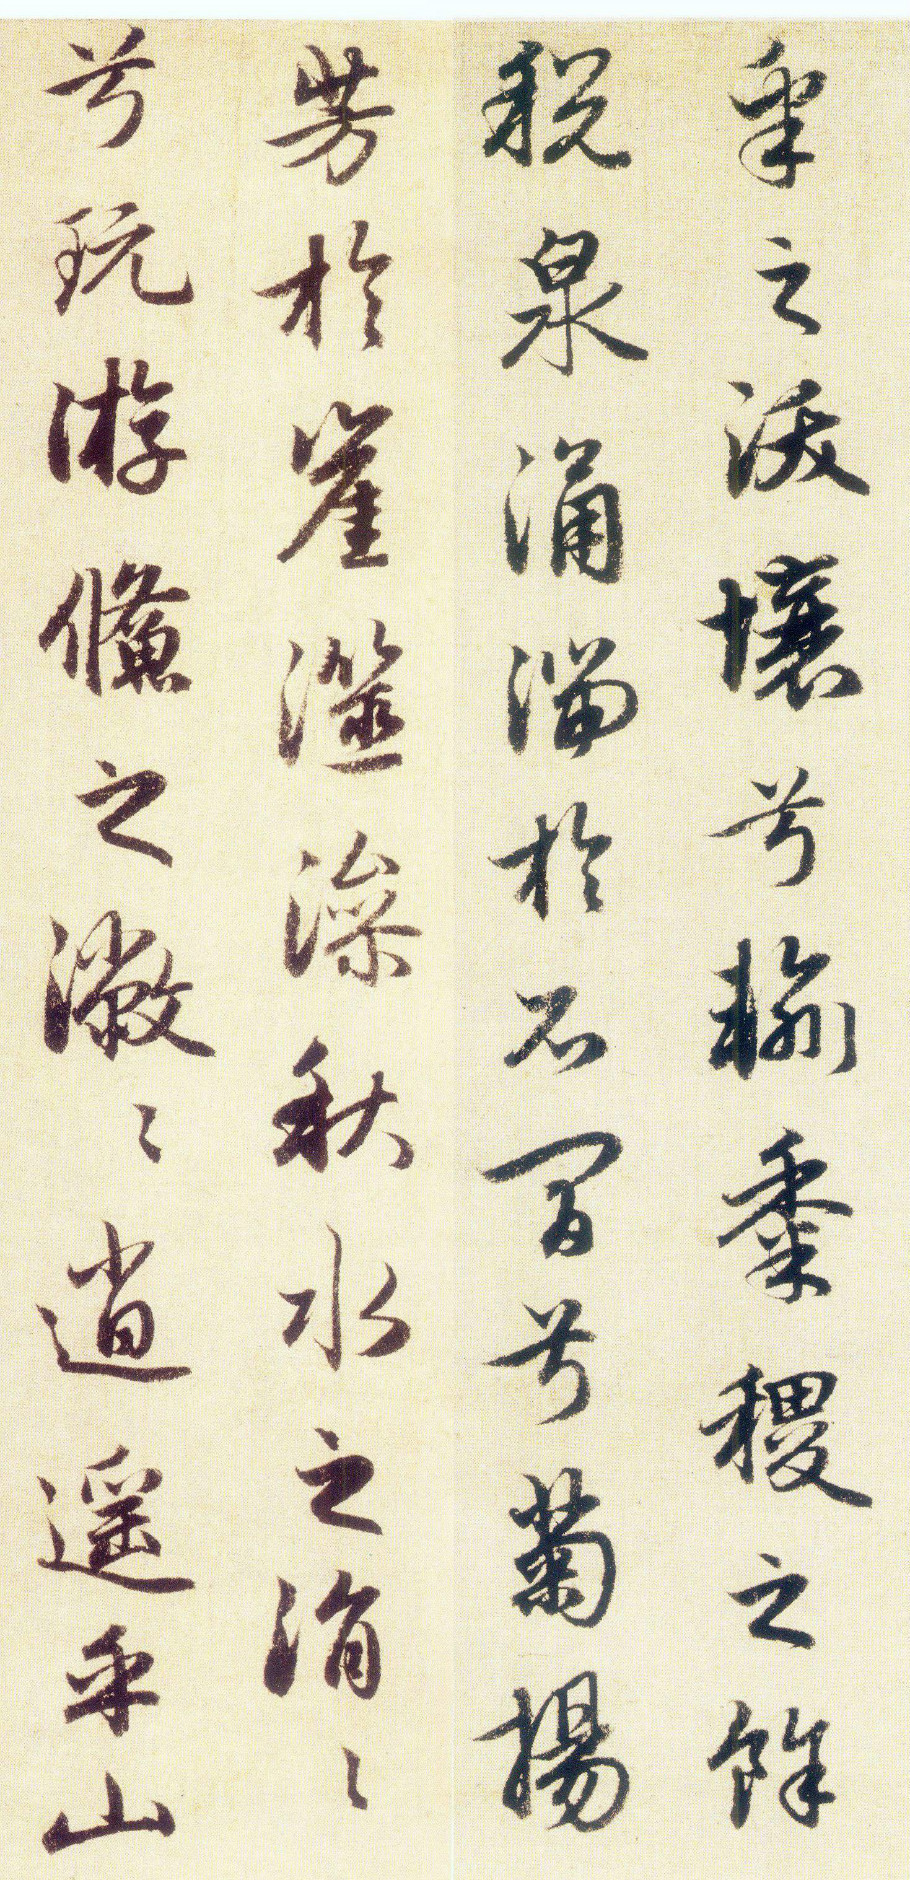 乎之沃壤兮輸黍稷之餘
税泉涌溜於石間兮菊揚
芳於崖澨澡秋水之涓〻
兮玩游鯈之潎〻逍遥乎山